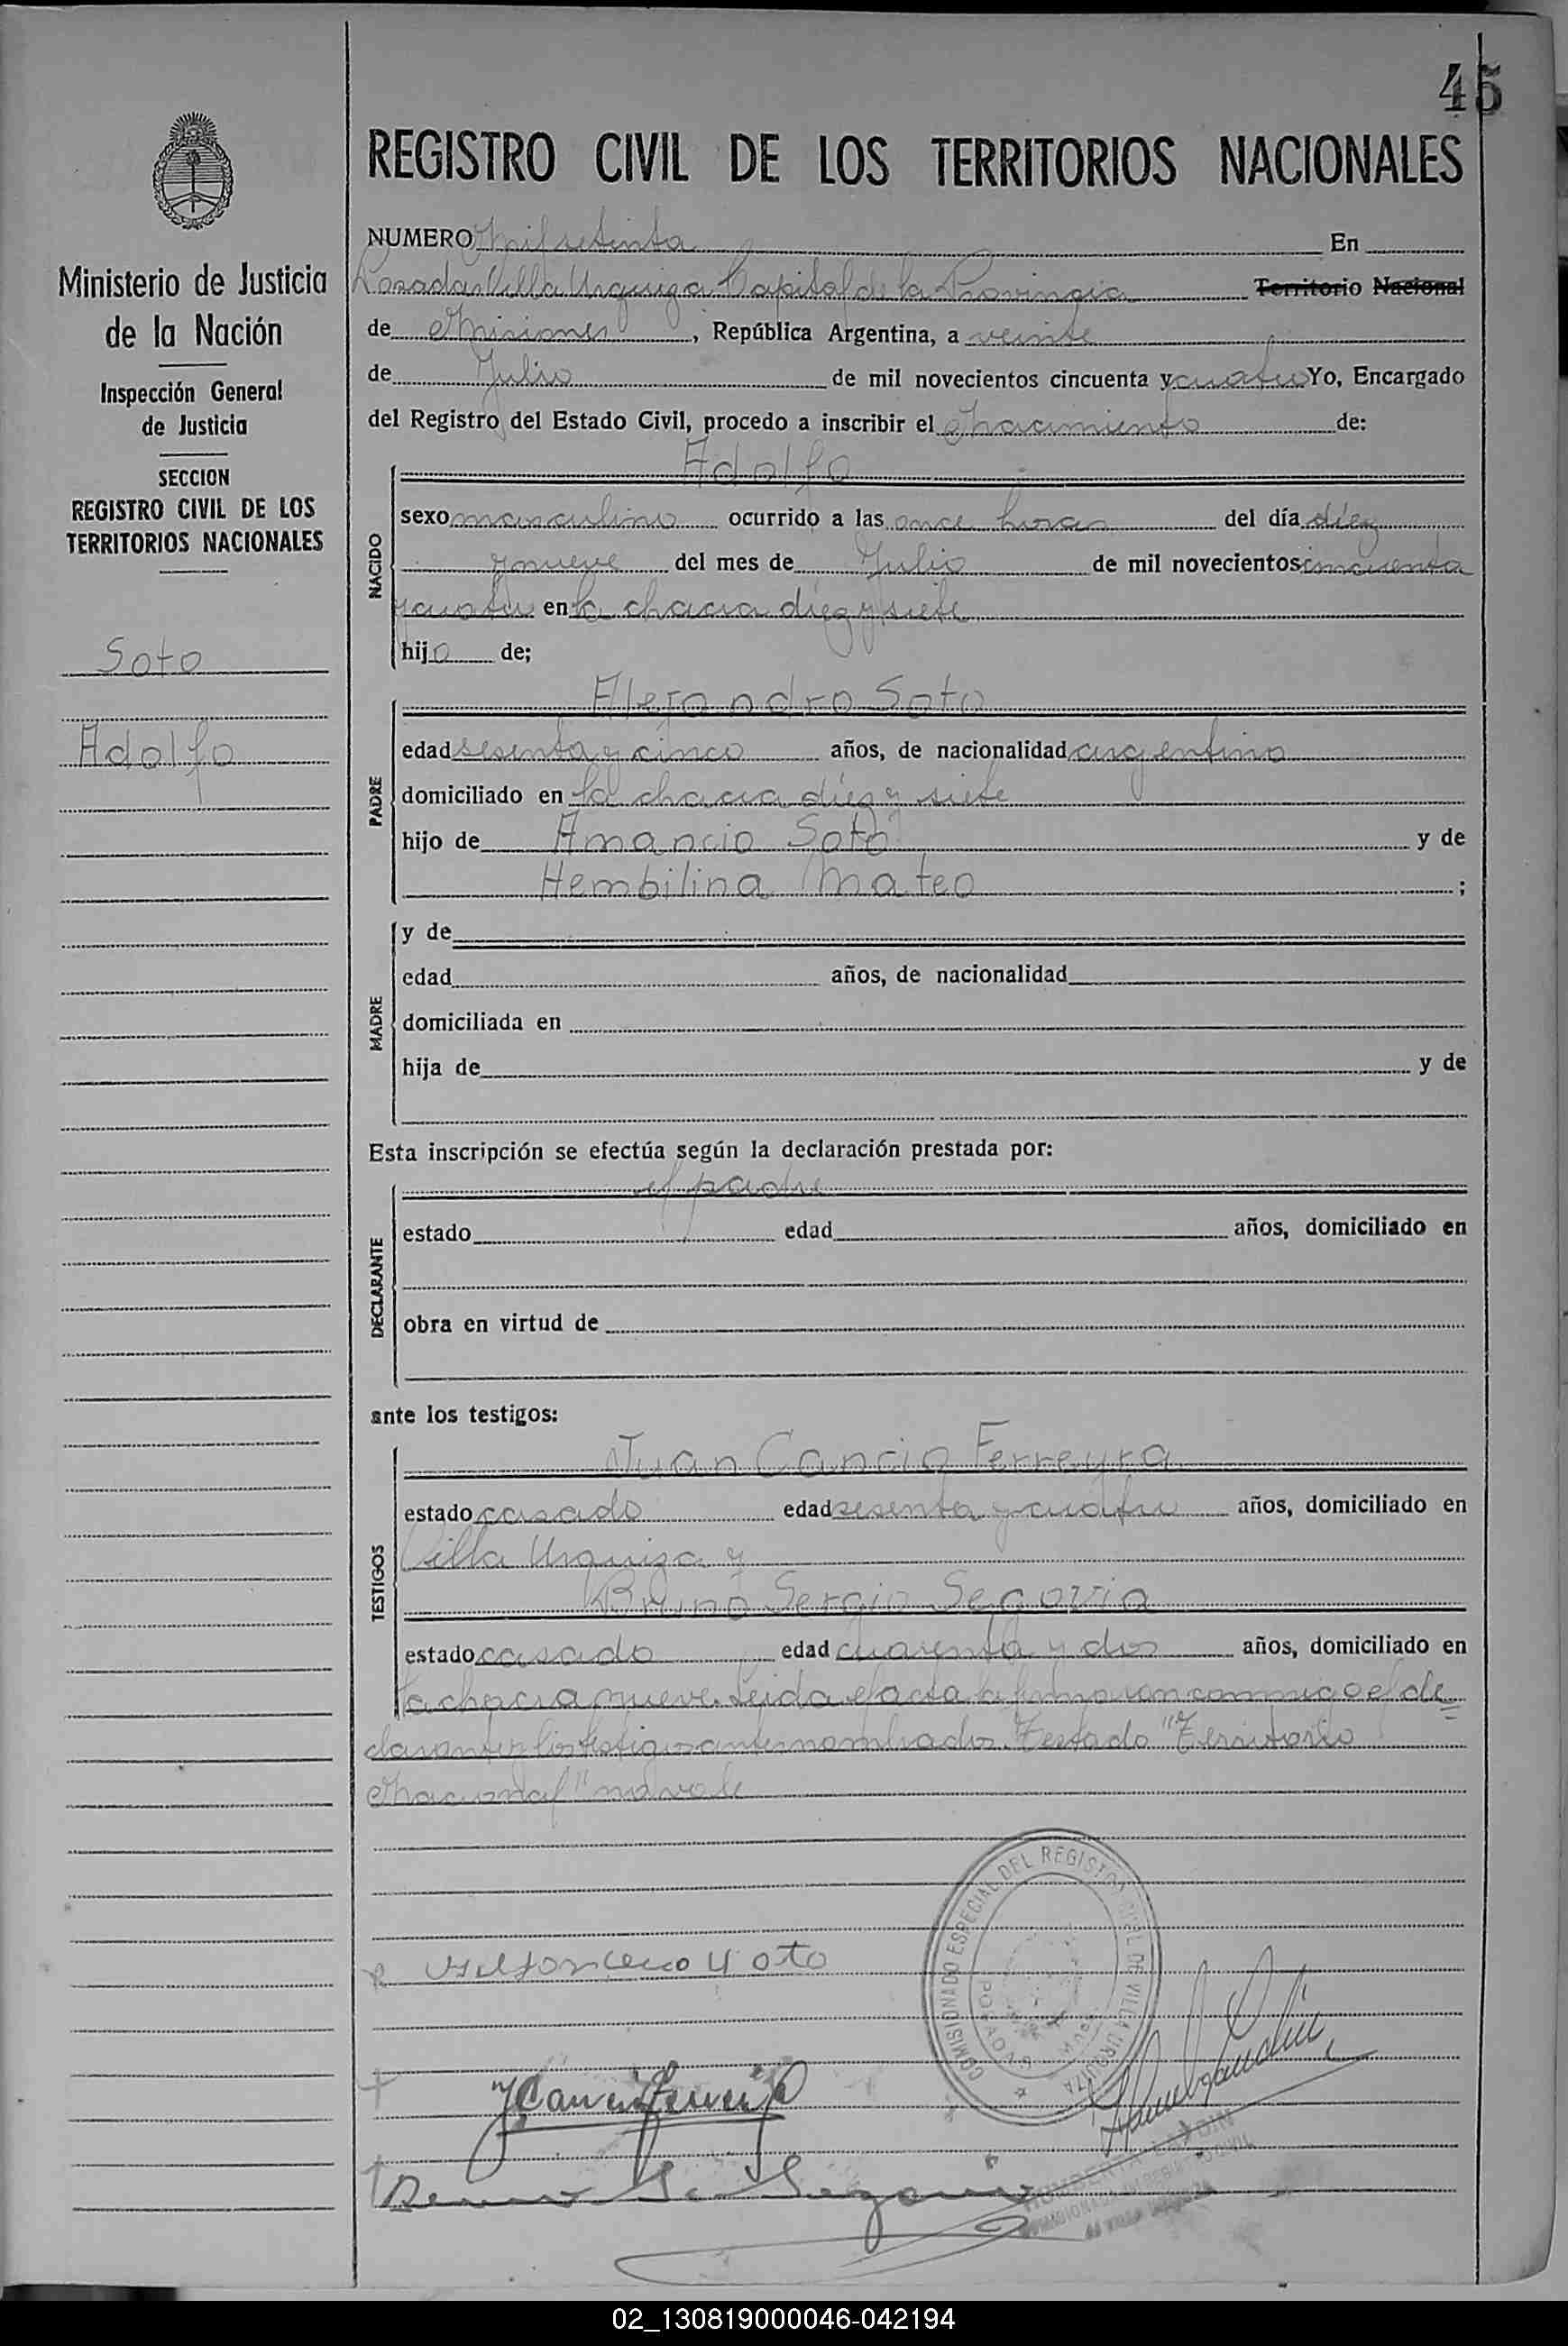 45
REGISTRO CIVIL DE LOS TERRITORIOS NACIONALES
Ministerio de Justicia
de la Nación
Inspección General
de Justicia
SECCION
REGISTRO CIVIL DE LOS
TERRITORIOS NACIONALES
Soto
Adolfo
NUMERO Mil setenta En
Posadas Villa Urquiza Capital de la Provincia Territorio Nacional
de Misiones, República Argentina, a veinte
de Julio de mil novecientos cincuenta y cuatro Yo, Encargado
del Registro del Estado Civil, procedo a inscribir el Nacimiento de:
Adolfo
NACIDO
sexo masculino ocurrido a las once horas del día diez
y nueve del mes de Julio de mil novecientos cincuenta
y cuatro en la chacra diez y siete
hijo de;
PADRE
Alejandro Soto
edad sesenta y cinco años, de nacionalidad argentino
domiciliado en la chacra diez y siete
hijo de Amancio Soto y de
Hembilina Mateo ;
MADRE
y de
edad años, de nacionalidad
domiciliada en
hija de y de
Esta inscripción se efectúa según la declaración prestada por:
DECLARANTE
el padre
estado edad años, domiciliado en
obra en virtud de
ante los testigos:
TESTIGOS
Juan Cancio Ferreyra
estado casado edad sesenta y cuatro años, domiciliado en
Villa Urquiza y
Bruno Sergio Segovia
estado casado edad cuarenta y dos años, domiciliado en
la chacra nueve. Leida el acta la firmaron conmigo el de=
clarante y los testigos antes nombrados. Testado "Territorio
Nacional" no vale
Soto
COMISIONADO ESPECIAL DEL REGISTRO CIVIL DE VILLA URQUIZA
POSADAS
02_130819000046-042194